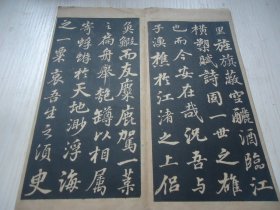 里旌旗蔽空釃酒臨江
橫槊賦詩固一世之雄
也而今安在哉況吾與
子漁樵於江渚之上侶
魚鰕而友麋鹿駕一葉
之扁舟舉匏罇以相屬
寄蜉蝣於天地渺浮海
之一粟哀吾生之須臾